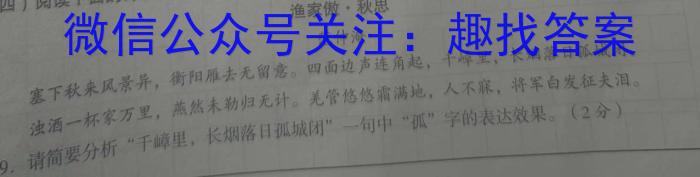 四）阅读下面的
渔家傲·秋思
微信公众号关注：趣找答案
塞下秋来风景异，衡阳雁去无留意。四面边声连角起，千嶂里，长烟落日孤城闭。
浊酒一杯家万里，燕然未勒归无计。羌管悠悠霜满地，人不寐，将军白发征夫泪。
9. 请简要分析“千嶂里，长烟落日孤城闭”一句中“孤”字的表达效果。（2分）